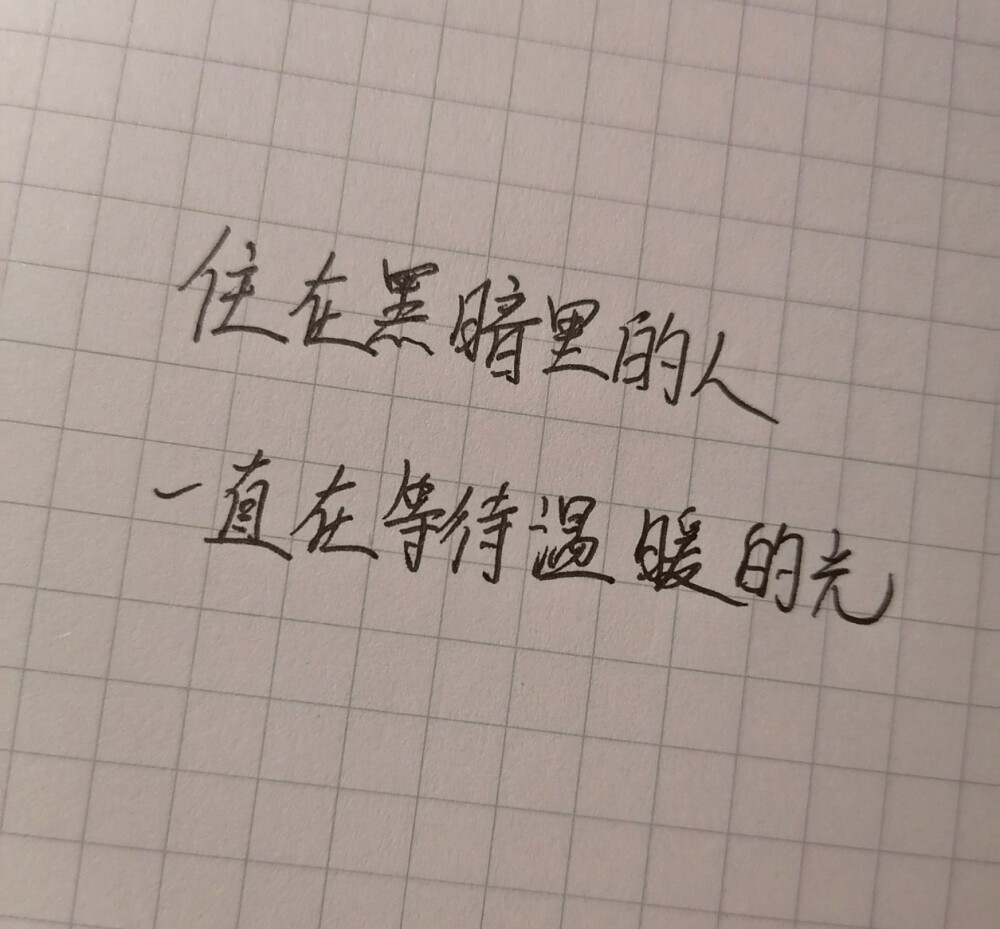 住在黑暗里的人
一直在等待温暖的光